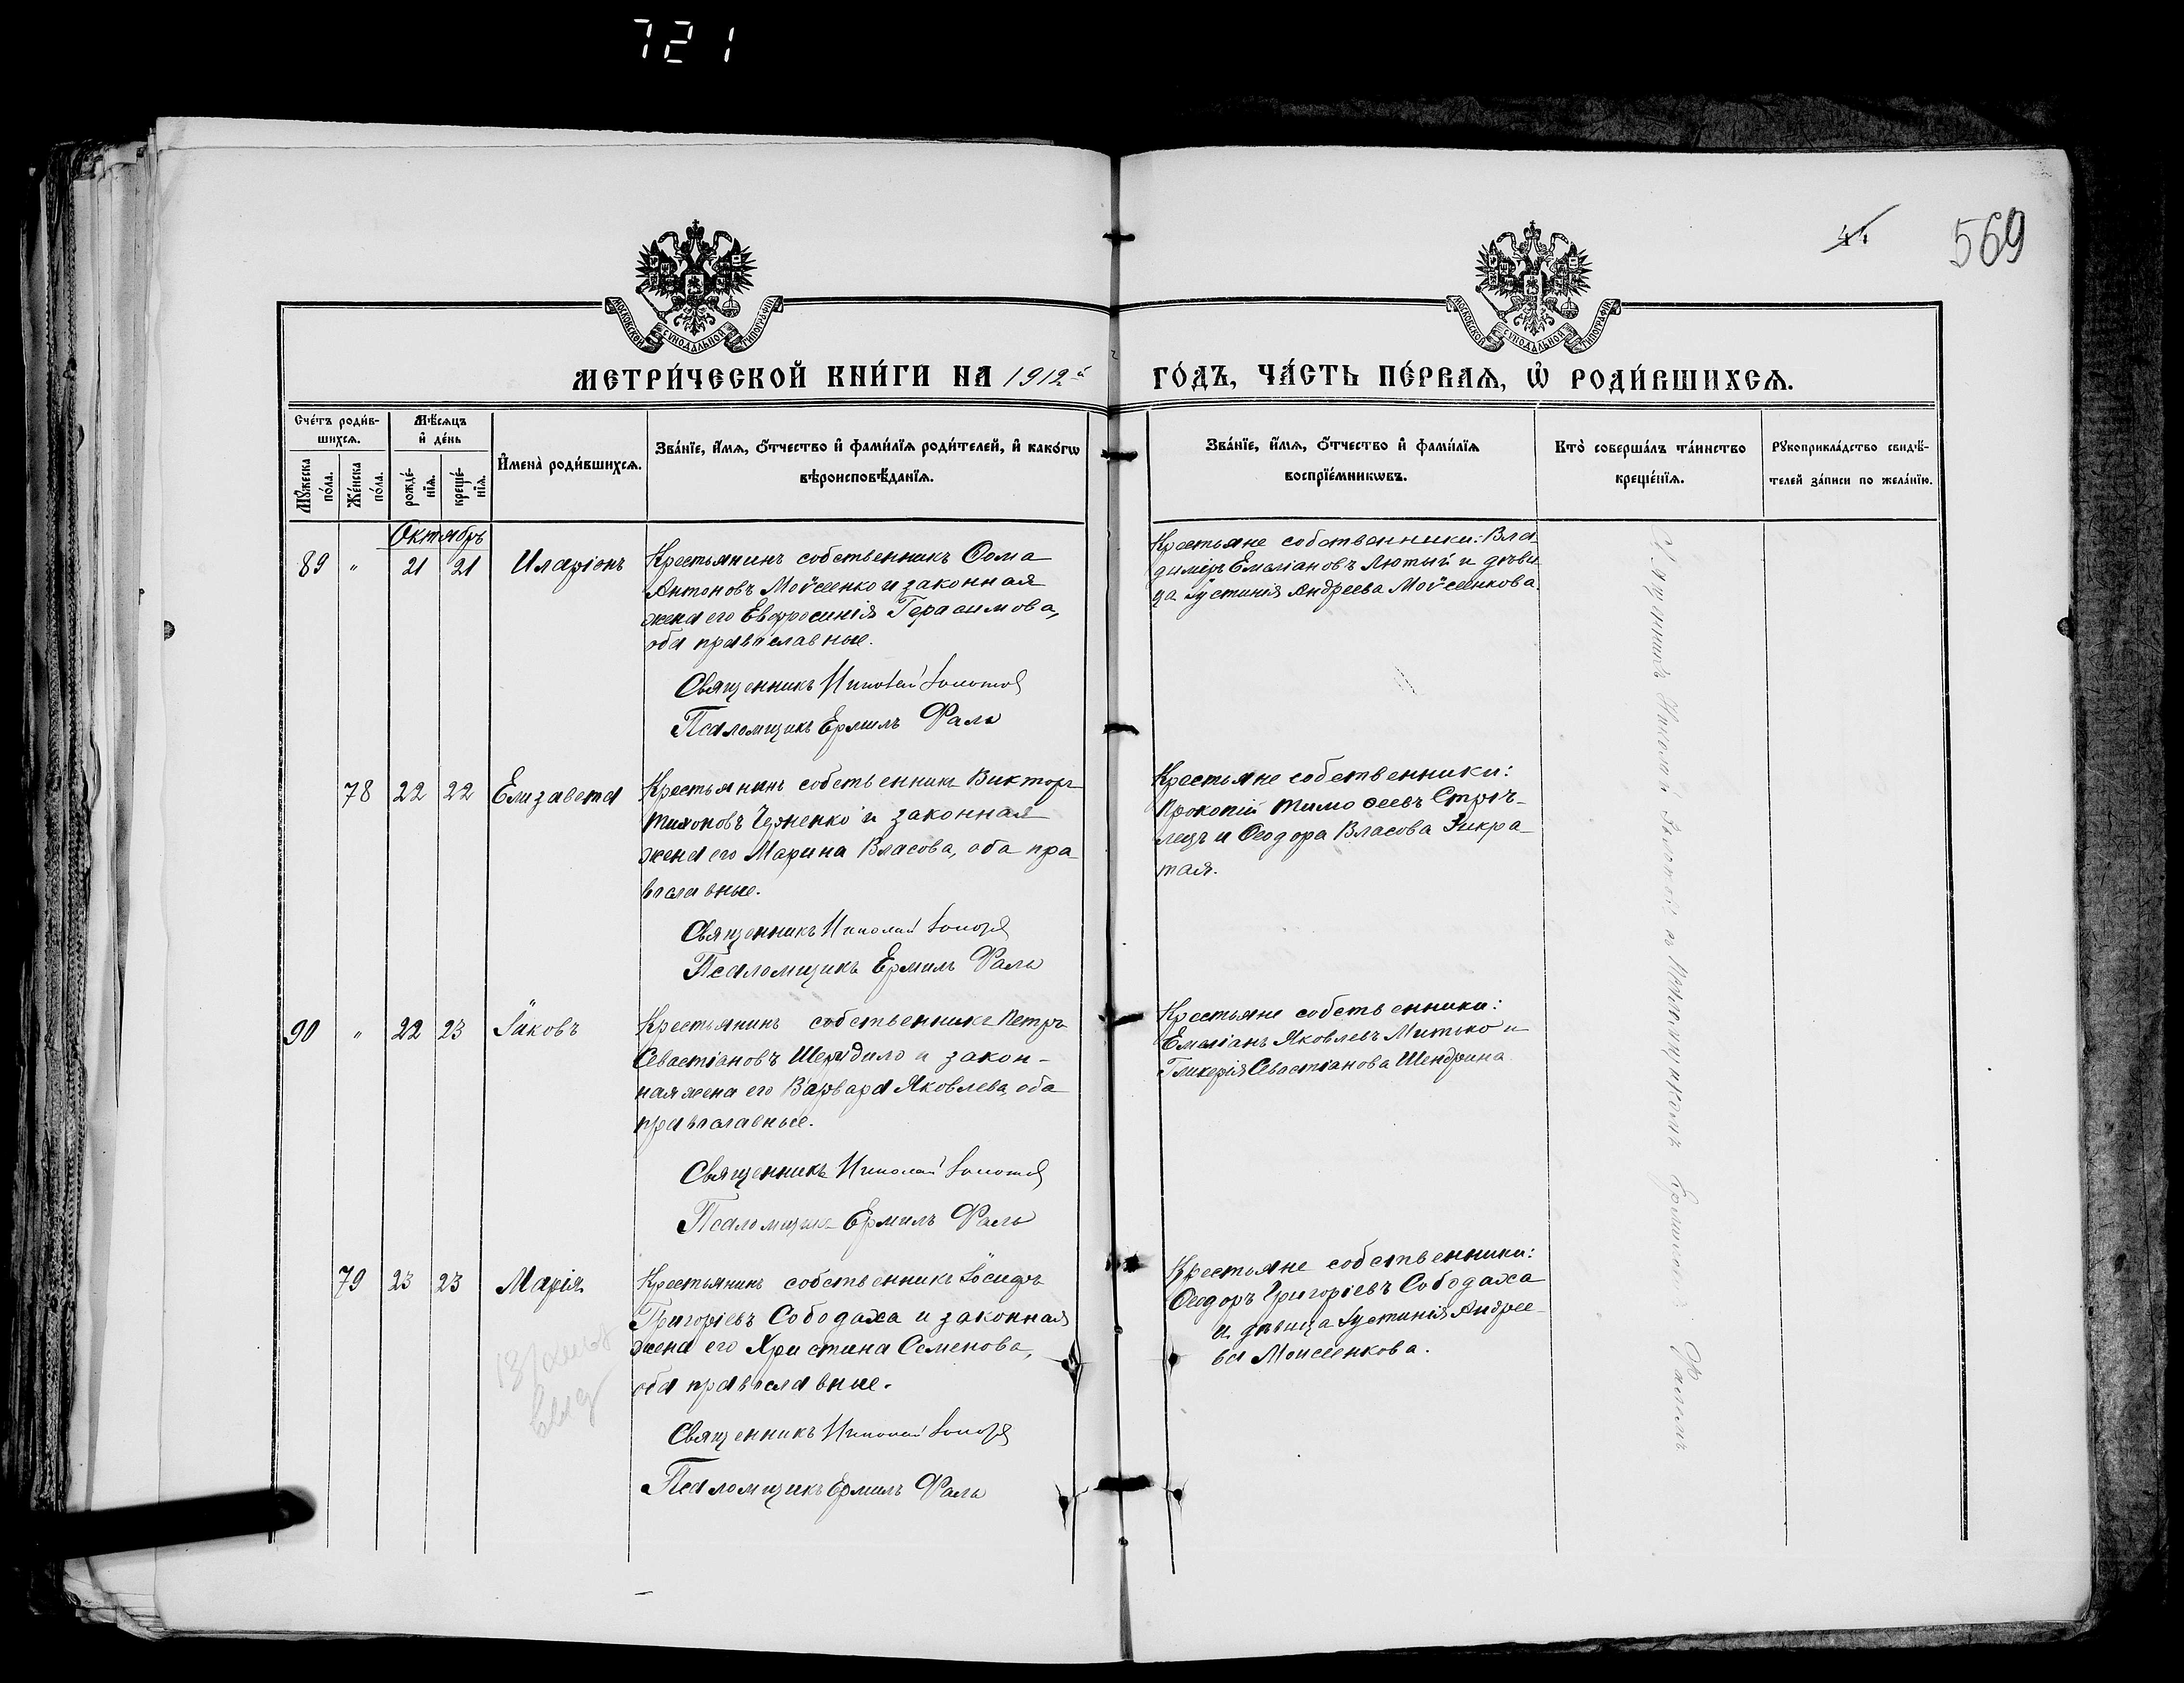 721
44
569
МОСКОВСКОЙ СѴНОДАЛЬНОЙ ТИПОГРАФІИ
МОСКОВСКОЙ СѴНОДАЛЬНОЙ ТИПОГРАФІИ
МЕТРИ́ЧЕСКОЙ КНИ́ГИ НА 1912й ГО́ДЪ, ЧА́СТЬ ПЕ́РВАѦ, Ѡ҆ РОДИ́ВШИХСѦ.
Сче́тъ роди́в-
шихсѧ.
Мꙋ́жеска
по́ла.
Же́нска
по́ла.
Мѣ́сѧцъ
и҆ де́нь
рожде́-
нїѧ.
креще́-
нїѧ.
И҆мена̀ роди́вшихсѧ.
Зва́нїе, и҆́мѧ, ѻ҆́тчество и҆ фами́лїѧ роди́телей, и҆ како́гѡ
вѣроисповѣ́данїѧ.
Зва́нїе, и҆́мѧ, ѻ҆́тчество и҆ фами́лїѧ
воспрїе́мникѡвъ.
Кто̀ соверша́лъ та́инство
креще́нїѧ.
Рꙋкоприкла́дство свидѣ́-
телей за́писи по жела́нїю.
Октябрь
89 " 21 21 Иларіонъ
Крестьянинъ собственникъ Ѳома
Антоновъ Мойсеенко и законная
жена его Евфросинія Герасимова,
оба православные.
Священникъ Николай
Псаломщикъ Ермилъ Фаль
Крестьяне собственники: Вла-
диміръ Емеліановъ Лютый и дѣви-
ца Іустинія Андреева Мойсеенкова.
78 22 22 Елизавета
Крестьянинъ собственникъ Викторъ
Тихоновъ и законная
жена его Марина Власова, оба пра-
вославные.
Священникъ Николай
Псаломщикъ Ермилъ Фаль
Крестьяне собственники:
Прокопій Тимоѳеевъ Стрѣ-
лецъ и Ѳеодора Власова Зикра-
тая.
90 " 22 23 Іаковъ
Крестьянинъ собственникъ Петръ
Севастіановъ и закон-
ная жена его Варвара Яковлева, оба
православные.
Священникъ Николай
Псаломщикъ Ермилъ Фаль
Крестьяне собственники:
Емеліанъ Яковлевъ Митько и
Гликерія Севастіанова Шендрина
79 23 23 Марія
Крестьянинъ собственникъ Іосифъ
Григоріевъ Сободаха и законная
жена его Христина Семенова,
оба православные.
Священникъ Николай
Псаломщикъ Ермилъ Фаль
Крестьяне собственники:
Ѳеодоръ Григоріевъ Сободаха
и дѣвица Іустинія Андрее-
ва Моисеенкова.
Священникъ Николай съ Псаломщикомъ Ермиломъ Фалемъ